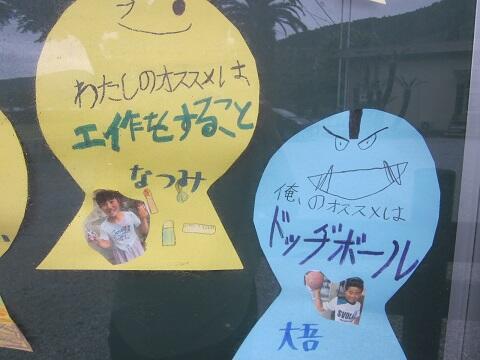 わたしのオススメは、
工作をすること
なつみ
俺、のオススメは
ドッヂボール
大吾